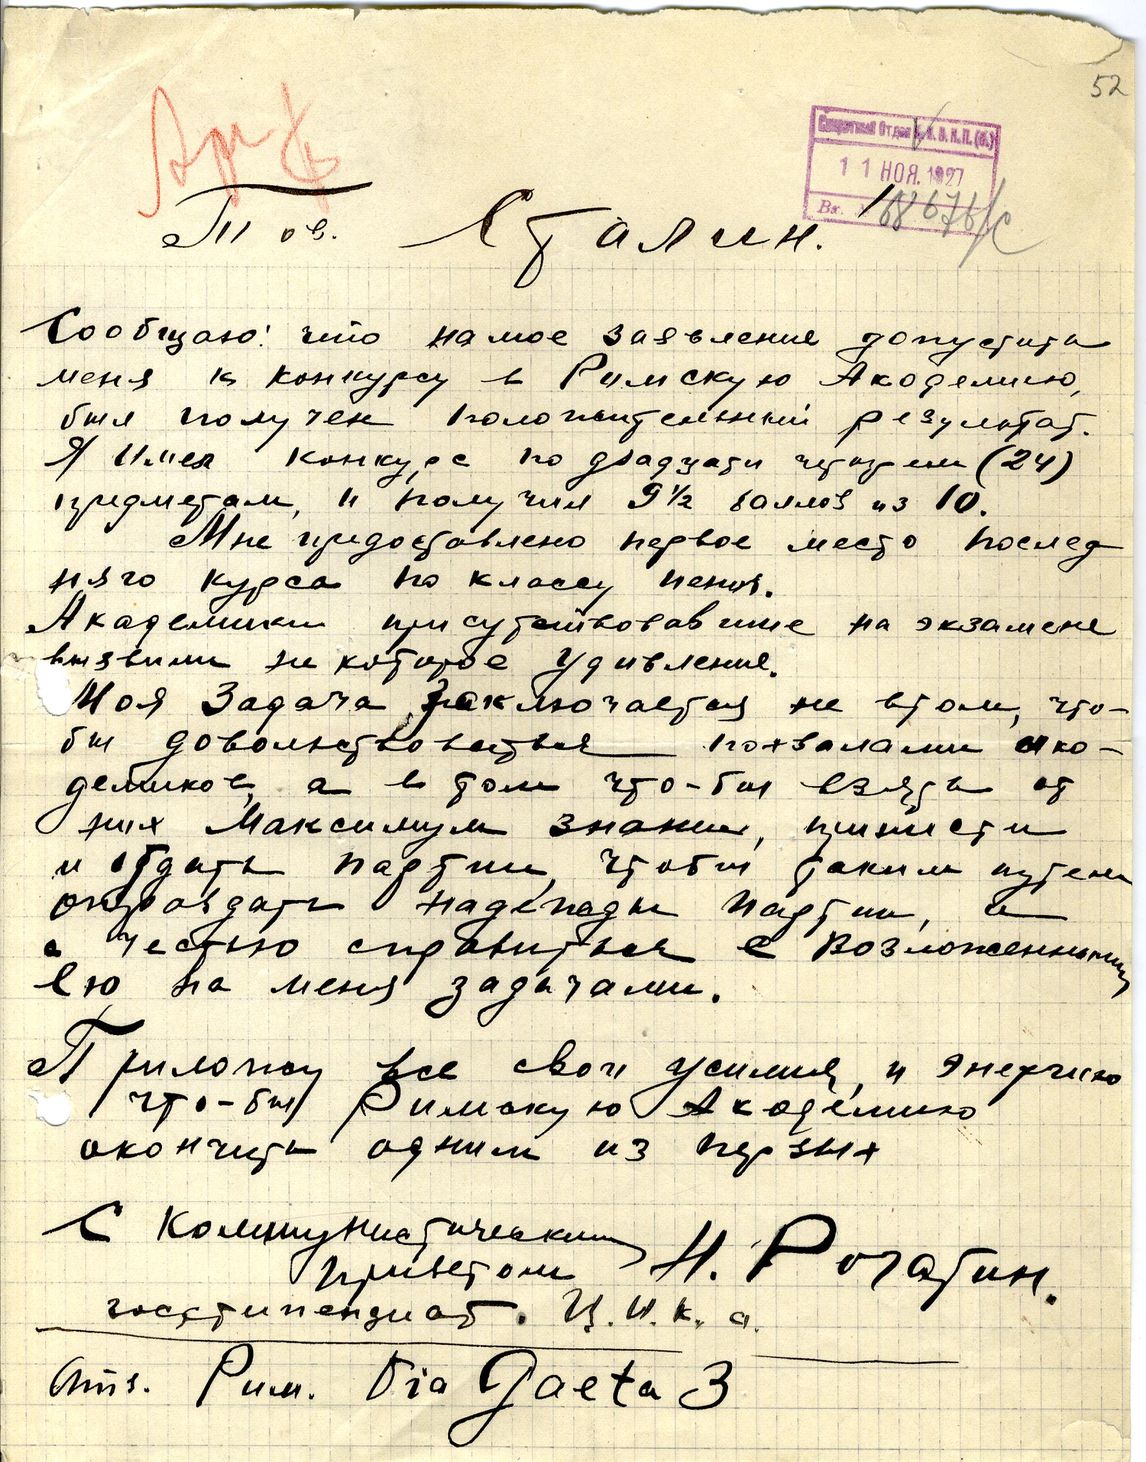 52
Арх
Секретный Отдел Ц.К.В.К.П.(б.)
11 НОЯ. 1927
Вх.
Тов. Сталин.
Сообщаю: что на мое заявление допустить
меня к конкурсу в Римскую Академию,
был получен положительный результат.
Я имел конкурс по двадцати четырем (24)
предметам, и получил 9 1/2 баллов из 10.
Мне предоставлено первое место послед
няго курса по классу пения.
Академики присутствовавшие на экзамене
вызвили не которое удивление.
Моя задача заключается не в том, что-
бы довольствоваться похвалами ака-
демиков, а в том что-бы взять от
них максимум знании, принести
и отдать партии, чтобы таким путем
оправдать надежды партии, и
с честью справиться с возложенными
ею на меня задачами.
Приложу все свои усилия, и энергию
что-бы Римскую Академию
окончить одним из первых
С Коммунистическим
приветом Н. Рогатин.
госстипендиат. Ц.И.К. а.
Рим. Via Gaeta 3